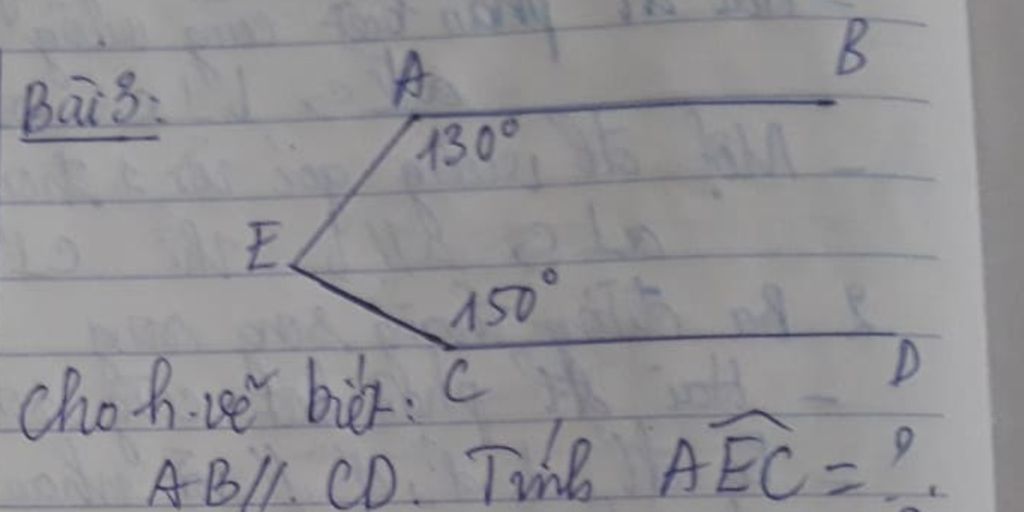 Bài 3:
A
B
130°
E
150°
C
D
Cho h.vẽ biết:
AB // CD. Tính AEC = ?